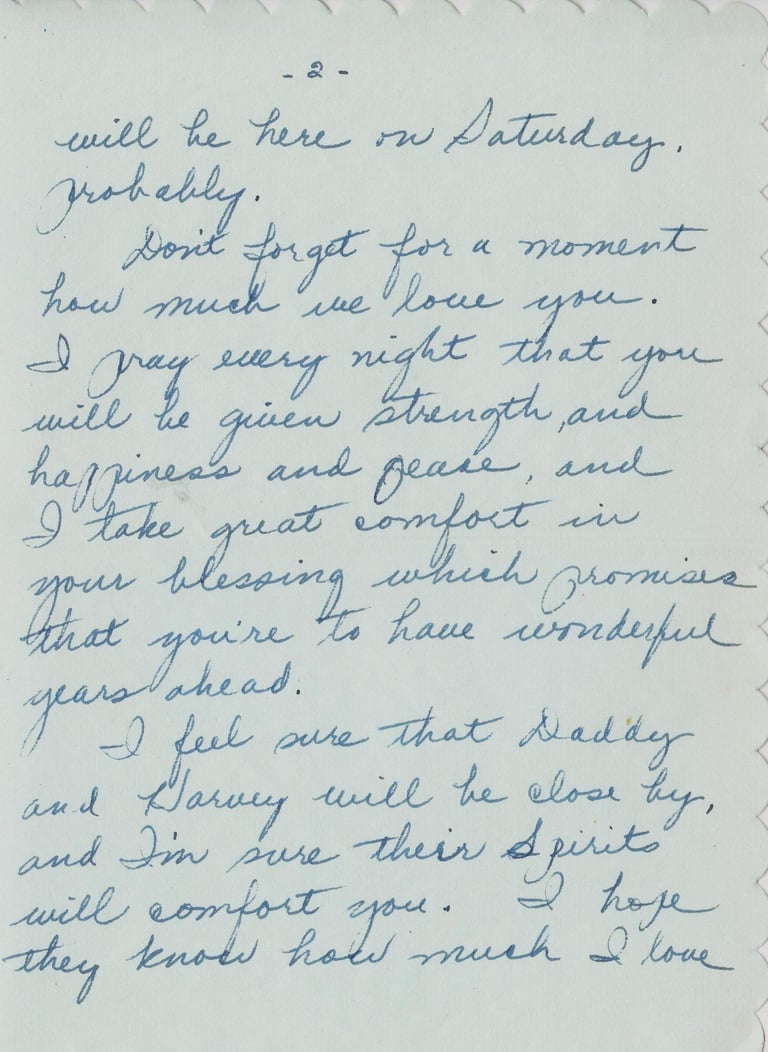 - 2 -
will be here on Saturday,
probably.
Don't forget for a moment
how much we love you.
I pray every night that you
will be given strength, and
happiness and peace, and
I take great comfort in
your blessing which promises
that you're to have wonderful
years ahead.
I feel sure that Daddy
and Harvey will be close by,
and I'm sure their Spirits
will comfort you. I hope
they know how much I love